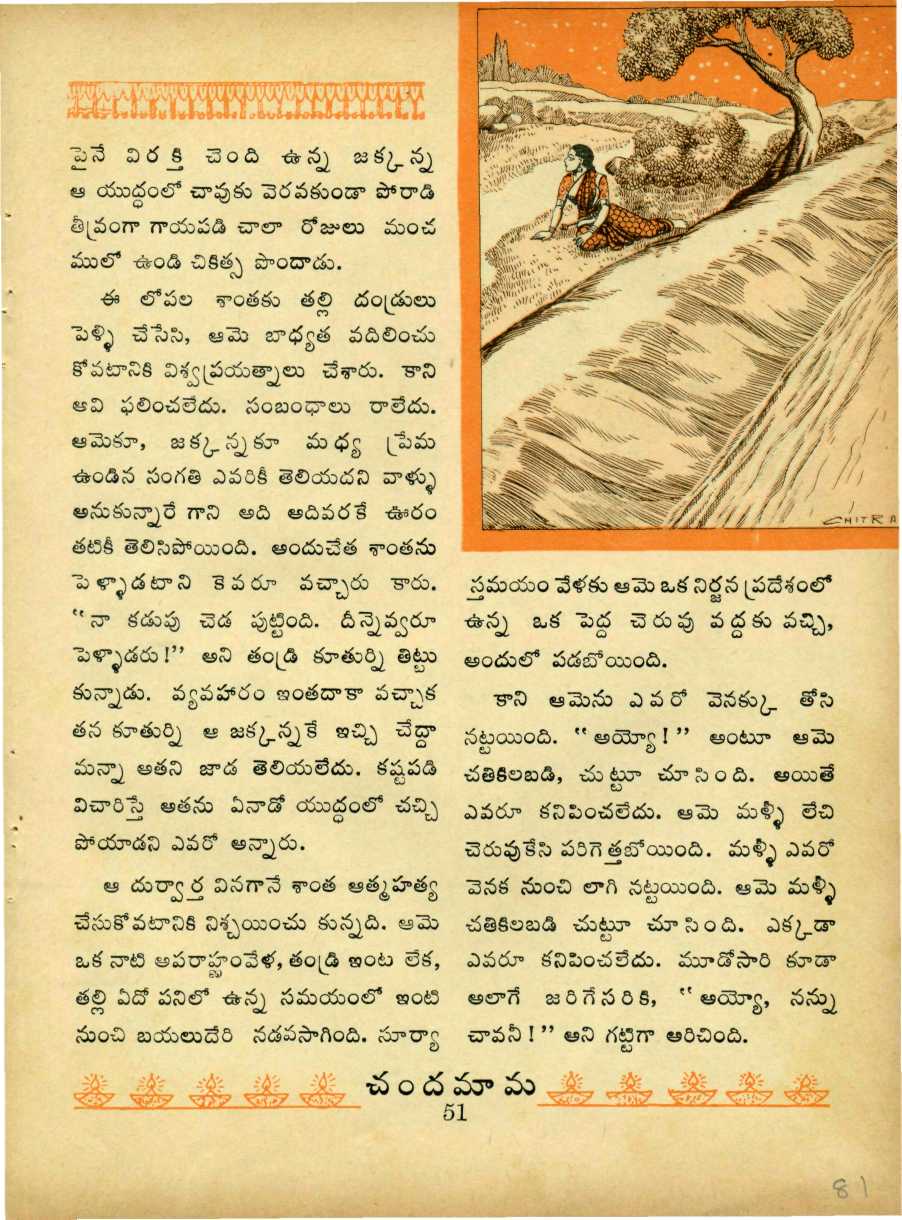 పైనే విరక్తి చెంది ఉన్న జక్కన్న
ఆ యుద్ధంలో చావుకు వెరవకుండా పోరాడి
తీవ్రంగా గాయపడి చాలా రోజులు మంచ
ములో ఉండి చికిత్స పొందాడు.
ఈ లోపల శాంతకు తల్లి దండ్రులు
పెళ్ళి చేసేసి, ఆమె బాధ్యత వదిలించు
కోవటానికి విశ్వప్రయత్నాలు చేశారు. కాని
అవి ఫలించలేదు. సంబంధాలు రాలేదు.
ఆమెకూ, జక్కన్నకూ మధ్య ప్రేమ
ఉండిన సంగతి ఎవరికీ తెలియదని వాళ్ళు
అనుకున్నారే గాని అది అదివరకే ఊరం
తటికీ తెలిసిపోయింది. అందుచేత శాంతను
పెళ్ళాడటాని కెవరూ వచ్చారు కారు.
“నా కడుపు చెడ పుట్టింది. దీన్నెవ్వరూ
పెళ్ళాడరు!” అని తండ్రి కూతుర్ని తిట్టు
కున్నాడు. వ్యవహారం ఇంతదాకా వచ్చాక
తన కూతుర్ని ఆ జక్కన్నకే ఇచ్చి చేద్దా
మన్నా అతని జాడ తెలియలేదు. కష్టపడి
విచారిస్తే అతను ఏనాడో యుద్ధంలో చచ్చి
పోయాడని ఎవరో అన్నారు.
ఆ దుర్వార్త వినగానే శాంత ఆత్మహత్య
చేసుకోవటానికి నిశ్చయించు కున్నది. ఆమె
ఒక నాటి అపరాహ్ణంవేళ, తండ్రి ఇంట లేక,
తల్లి ఏదో పనిలో ఉన్న సమయంలో ఇంటి
నుంచి బయలుదేరి నడవసాగింది. సూర్యా
స్తమయం వేళకు ఆమె ఒక నిర్జన ప్రదేశంలో
ఉన్న ఒక పెద్ద చెరువు వద్దకు వచ్చి,
అందులో పడబోయింది.
కాని ఆమెను ఎవరో వెనక్కు తోసి
నట్టయింది. “అయ్యో!” అంటూ ఆమె
చతికిలబడి, చుట్టూ చూసింది. అయితే
ఎవరూ కనిపించలేదు. ఆమె మళ్ళీ లేచి
చెరువుకేసి పరిగెత్తబోయింది. మళ్ళీ ఎవరో
వెనక నుంచి లాగి నట్టయింది. ఆమె మళ్ళీ
చతికిలబడి చుట్టూ చూసింది. ఎక్కడా
ఎవరూ కనిపించలేదు. మూడోసారి కూడా
అలాగే జరిగేసరికి, “అయ్యో, నన్ను
చావనీ!” అని గట్టిగా అరిచింది.
CHITRA
చందమామ
51
81